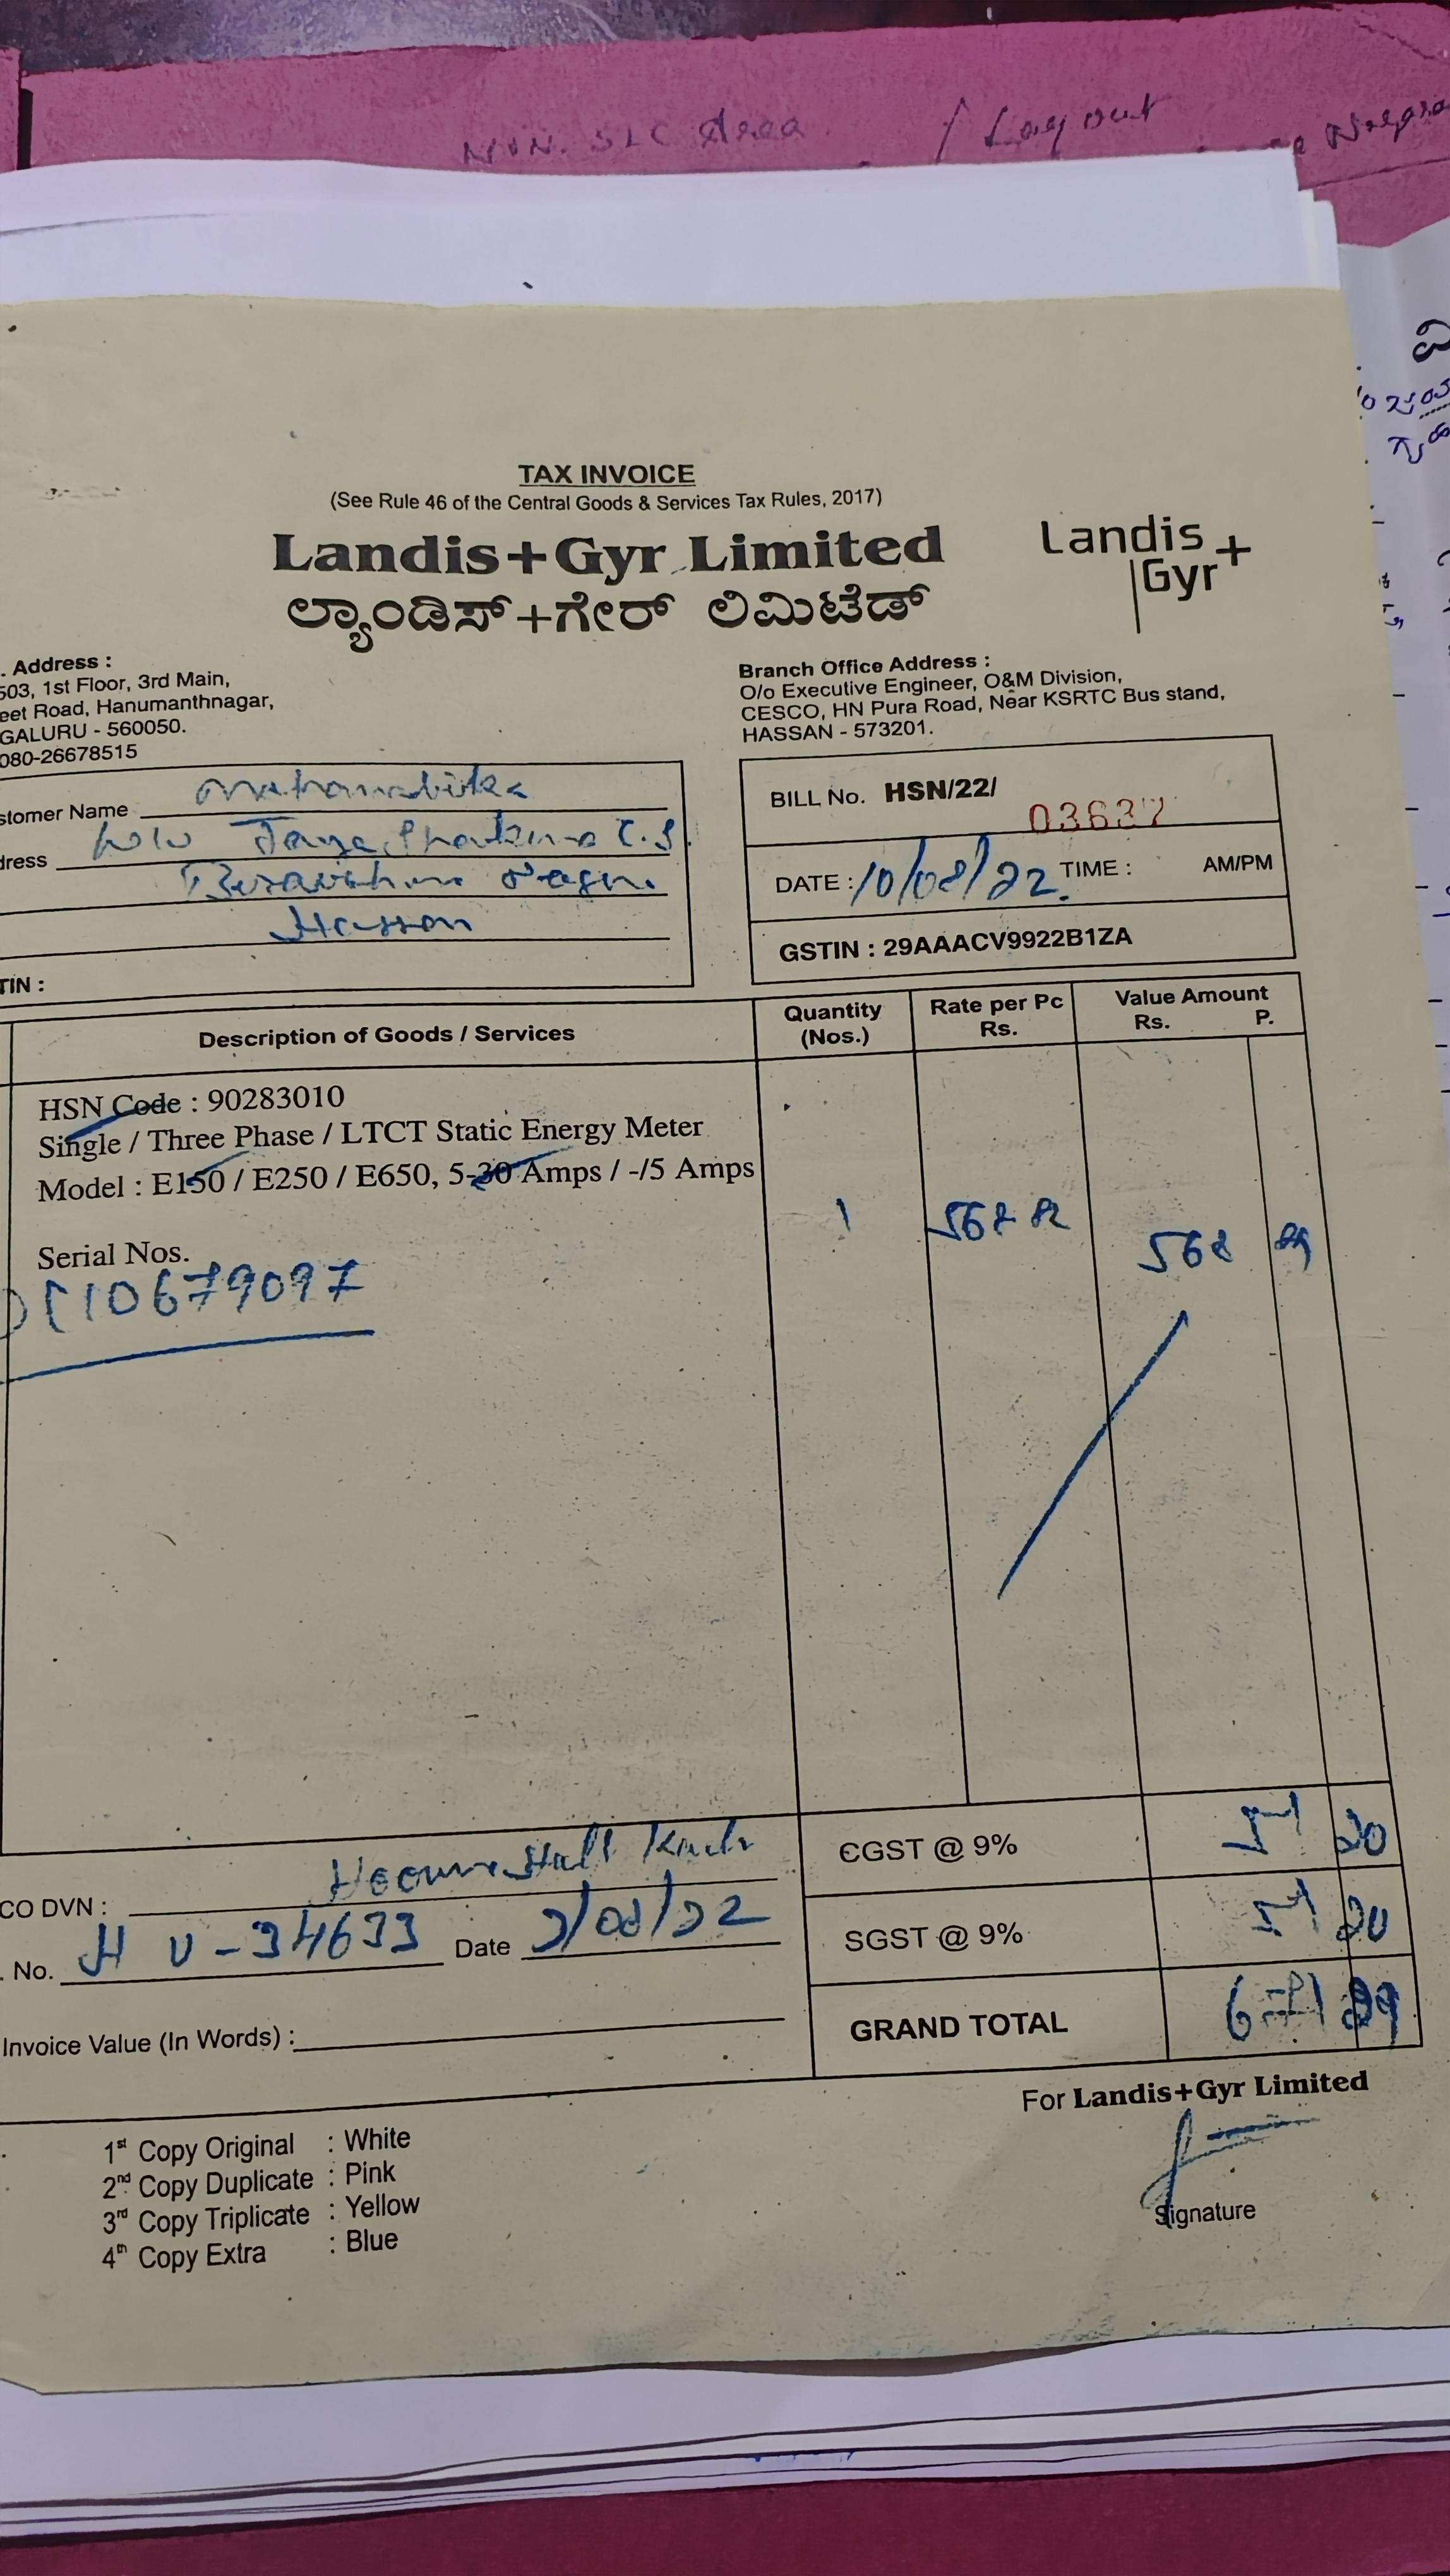 Non. SLC Area / Layout
TAX INVOICE
(See Rule 46 of the Central Goods & Services Tax Rules, 2017)
Landis+Gyr Limited
ಲ್ಯಾಂಡಿಸ್+ಗೇರ್ ಲಿಮಿಟೆಡ್
Landis
Gyr+
. Address :
503, 1st Floor, 3rd Main,
eet Road, Hanumanthnagar,
GALURU - 560050.
080-26678515
Branch Office Address :
O/o Executive Engineer, O&M Division,
CESCO, HN Pura Road, Near KSRTC Bus stand,
HASSAN - 573201.
stomer Name
dress W/o
Hassan
TIN :
BILL No. HSN/22/ 03637
DATE : 10/08/22. TIME : AM/PM
GSTIN : 29AAACV9922B1ZA
Description of Goods / Services
Quantity (Nos.)
Rate per Pc Rs.
Value Amount Rs. P.
HSN Code : 90283010
Single / Three Phase / LTCT Static Energy Meter
Model : E150 / E250 / E650, 5-30 Amps / -/5 Amps
1
568
Serial Nos.
10679097
CGST @ 9% 51 20
CO DVN :
SGST @ 9% 51 20
. No. 34633 Date
GRAND TOTAL
Invoice Value (In Words) :
For Landis+Gyr Limited
1st Copy Original : White
2nd Copy Duplicate : Pink
3rd Copy Triplicate : Yellow
4th Copy Extra : Blue
Signature